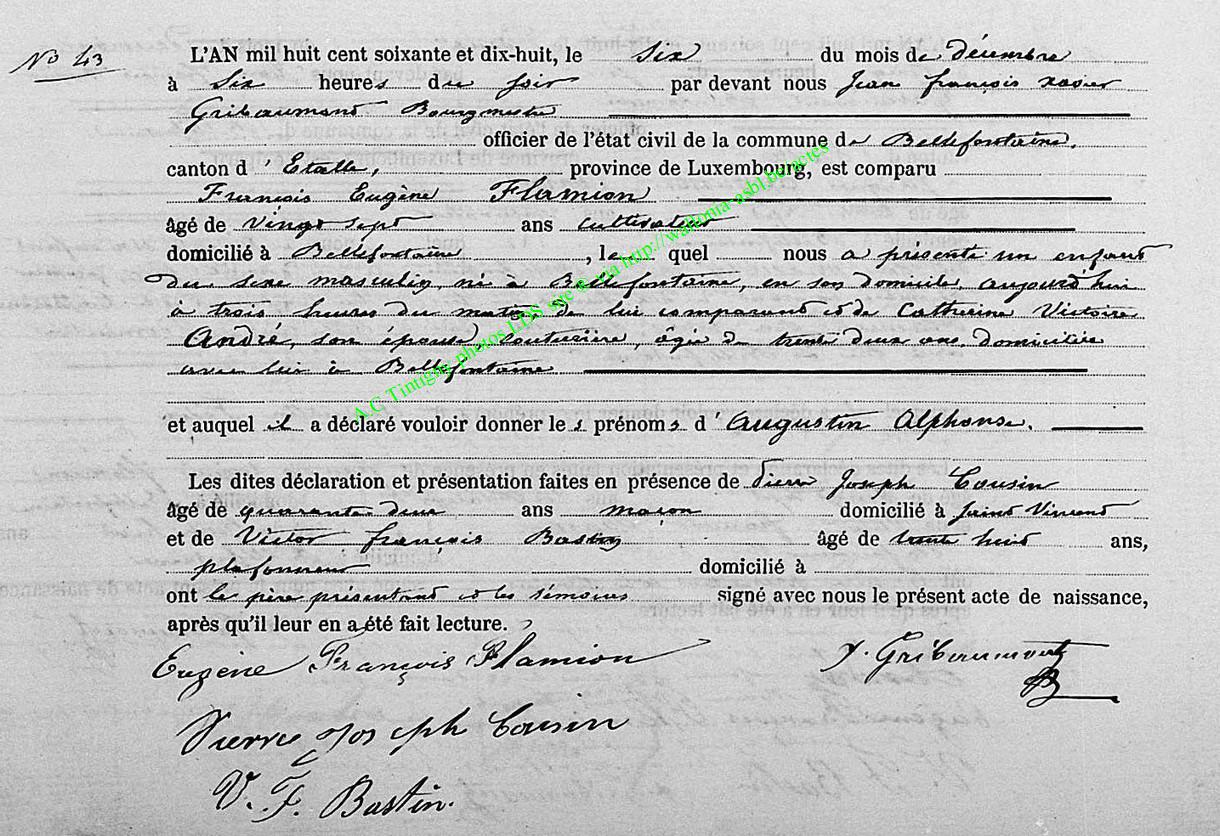 No 43
L'AN mil huit cent soixante et dix-huit, le six du mois de décembre
à six heures du soir par devant nous Jean françois xavier
Gribaumont Bourgmestre
officier de l'état civil de la commune de Bellefontaine,
canton d'Etalle, province de Luxembourg, est comparu
François Eugène Flamion
âgé de vingt sept ans cultivateur
domicilié à Bellefontaine, lequel nous a présenté un enfant
du sexe masculin, né à Bellefontaine, en son domicile, aujourd'hui
à trois heures du matin, de lui comparant et de Catherine Victoire
André, son épouse, couturière, âgée de trente deux ans, domiciliée
avec lui à Bellefontaine
et auquel il a déclaré vouloir donner les prénoms d'Augustin Alphonse.
Les dites déclaration et présentation faites en présence de Pierre Joseph Cousin
âgé de quarante deux ans maçon domicilié à Saint Vincent
et de Victor françois Bastin âgé de trente huit ans,
plafonneur domicilié à
ont le père présentant et les témoins signé avec nous le présent acte de naissance,
après qu'il leur en a été fait lecture.
Eugène François Flamion
J. Gribaumont
Pierre Joseph Cousin
V. F. Bastin.
A.C Tintigny photos LDS sur & via http://wallonia-asbl.be/actes